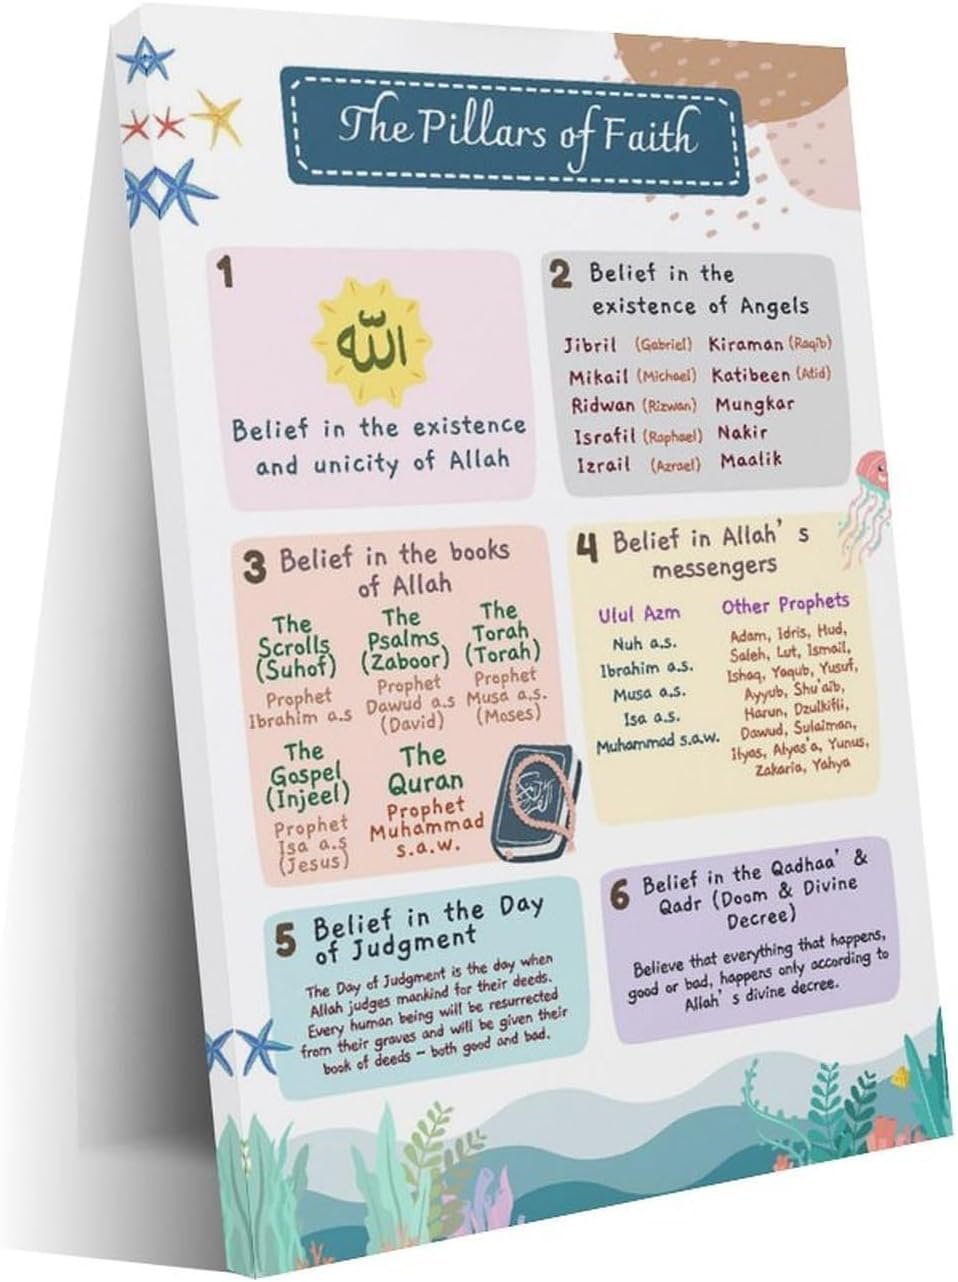 The Pillars of Faith
1
الله
Belief in the existence
and unicity of Allah
2 Belief in the
existence of Angels
Jibril (Gabriel) Kiraman (Raqib)
Mikail (Michael) Katibeen (Atid)
Ridwan (Rizwan) Mungkar
Israfil (Raphael) Nakir
Izrail (Azrael) Maalik
3 Belief in the books
of Allah
The
Scrolls
(Suhof)
Prophet
Ibrahim a.s
The
Psalms
(Zaboor)
Prophet
Dawud a.s
(David)
The
Torah
(Torah)
Prophet
Musa a.s.
(Moses)
The
Gospel
(Injeel)
Prophet
Isa a.s
(Jesus)
The
Quran
Prophet
Muhammad
s.a.w.
4 Belief in Allah's
messengers
Ulul Azm
Nuh a.s.
Ibrahim a.s.
Musa a.s.
Isa a.s.
Muhammad s.a.w.
Other Prophets
Adam, Idris, Hud,
Saleh, Lut, Ismail,
Ishaq, Yaqub, Yusuf,
Ayyub, Shu'aib,
Harun, Dzulkifli,
Dawud, Sulaiman,
Ilyas, Alyas'a, Yunus,
Zakaria, Yahya
5 Belief in the Day
of Judgment
The Day of Judgment is the day when
Allah judges mankind for their deeds.
Every human being will be resurrected
from their graves and will be given their
book of deeds - both good and bad.
6 Belief in the Qadhaa' &
Qadr (Doom & Divine
Decree)
Believe that everything that happens,
good or bad, happens only according to
Allah's divine decree.